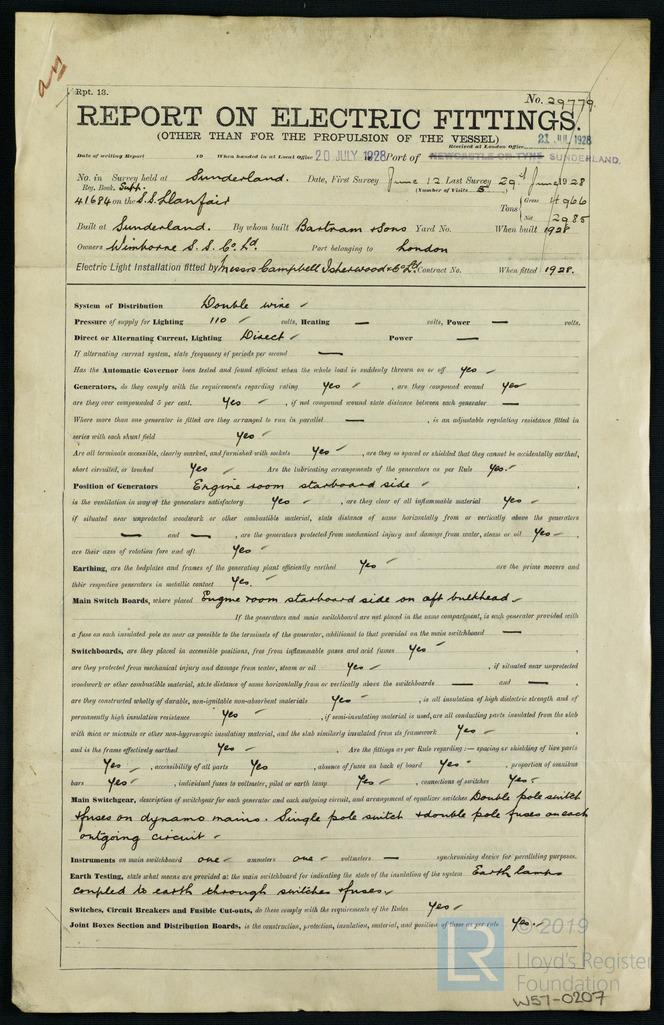 Rpt. 13.
No. 29779.
REPORT ON ELECTRIC FITTINGS.
(OTHER THAN FOR THE PROPULSION OF THE VESSEL)
21 JUL 1928
Received at London Office
Date of writing Report 19 When handed in at Local Office 20 JULY 1928 Port of NEWCASTLE-ON-TYNE SUNDERLAND.
No. in Survey held at Sunderland. Date, First Survey June 12 Last Survey 29th June 1928
Reg. Book. Supp. (Number of Visits 5)
41684 on the S.S. Llanfair Tons { Gross 4966
Net 2985
Built at Sunderland. By whom built Bartram & Sons Yard No. When built 1928
Owners Wimborne S. S. Co. Ld. Port belonging to London
Electric Light Installation fitted by Messrs Campbell Isherwood & Co. Ld. Contract No. When fitted 1928.
System of Distribution Double wire
Pressure of supply for Lighting 110 volts, Heating — volts, Power — volts.
Direct or Alternating Current, Lighting Direct Power —
If alternating current system, state frequency of periods per second —
Has the Automatic Governor been tested and found efficient when the whole load is suddenly thrown on or off yes
Generators, do they comply with the requirements regarding rating yes , are they compound wound yes
are they over compounded 5 per cent. yes , if not compound wound state distance between each generator —
Where more than one generator is fitted are they arranged to run in parallel — , is an adjustable regulating resistance fitted in
series with each shunt field yes
Are all terminals accessible, clearly marked, and furnished with sockets yes , are they so spaced or shielded that they cannot be accidentally earthed,
short circuited, or touched yes Are the lubricating arrangements of the generators as per Rule yes.
Position of Generators Engine room starboard side ,
is the ventilation in way of the generators satisfactory yes , are they clear of all inflammable material yes
if situated near unprotected woodwork or other combustible material, state distance of same horizontally from or vertically above the generators
— and — , are the generators protected from mechanical injury and damage from water, steam or oil yes ,
are their axes of rotation fore and aft yes
Earthing, are the bedplates and frames of the generating plant efficiently earthed yes are the prime movers and
their respective generators in metallic contact yes.
Main Switch Boards, where placed Engine room starboard side on aft bulkhead
If the generators and main switchboard are not placed in the same compartment, is each generator provided with
a fuse on each insulated pole as near as possible to the terminals of the generator, additional to that provided on the main switchboard —
Switchboards, are they placed in accessible positions, free from inflammable gases and acid fumes yes ,
are they protected from mechanical injury and damage from water, steam or oil yes , if situated near unprotected
woodwork or other combustible material, state distance of same horizontally from or vertically above the switchboards — and — ,
are they constructed wholly of durable, non-ignitable non-absorbent materials yes , is all insulation of high dielectric strength and of
permanently high insulation resistance yes , if semi-insulating material is used, are all conducting parts insulated from the slab
with mica or micanite or other non-hygroscopic insulating material, and the slab similarly insulated from its framework yes ,
and is the frame effectively earthed yes . Are the fittings as per Rule regarding:— spacing or shielding of live parts
yes , accessibility of all parts yes , absence of fuses on back of board yes , proportion of omnibus
bars yes , individual fuses to voltmeter, pilot or earth lamp yes , connections of switches yes
Main Switchgear, description of switchgear for each generator and each outgoing circuit, and arrangement of equalizer switches Double pole switch
& fuses on dynamo mains. Single pole switch & double pole fuses on each
outgoing circuit
Instruments on main switchboard one ammeters one voltmeters — synchronising device for paralleling purposes.
Earth Testing, state what means are provided at the main switchboard for indicating the state of the insulation of the system Earth lamps
coupled to earth through switches & fuses
Switches, Circuit Breakers and Fusible Cut-outs, do these comply with the requirements of the Rules yes
Joint Boxes Section and Distribution Boards, is the construction, protection, insulation, material, and position of these as per rule yes.
LR
© 2019
Lloyd's Register
Foundation
W57-0207